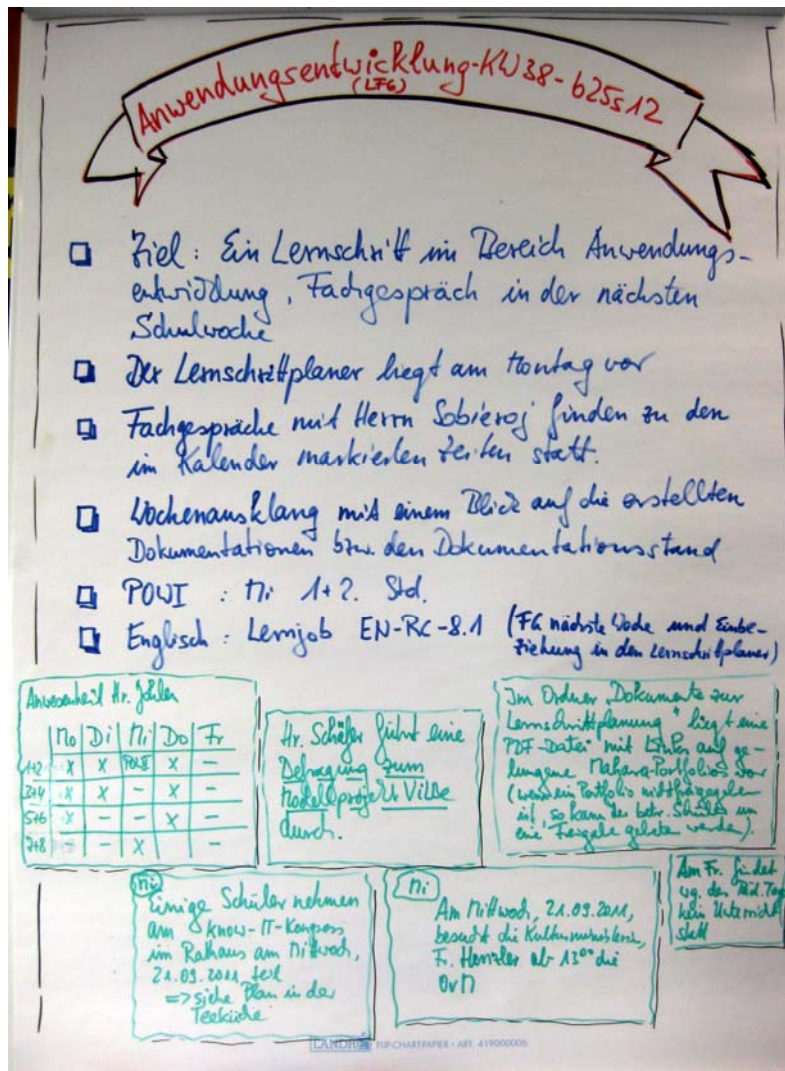 Anwendungsentwicklung-KW38-b25s12
(LF6)
Ziel: Ein Lernschritt im Bereich Anwendungs-
entwicklung, Fachgespräch in der nächsten
Schulwoche
Der Lernschrittplaner liegt am Montag vor
Fachgespräche mit Herrn Sobieroj finden zu den
im Kalender markierten Zeiten statt.
Wochenausklang mit einem Blick auf die erstellten
Dokumentationen bzw. den Dokumentationsstand
POWI : Mi 1+2. Std.
Englisch : Lernjob EN-RC-8.1 (FG nächste Woche und Einbe-
ziehung in den Lernschrittplaner)
Anwesenheit Hr.
Mo Di Mi Do Fr
1+2 X X POWI X –
3+4 X X – X –
5+6 X – – X –
7+8 – – X –
Hr. Schäfer führt eine
Befragung zum
Modellprojekt ViLBe
durch.
Im Ordner „Dokumente zur
Lernschrittplanung" liegt eine
PDF-Datei mit Links auf ge-
lungene Mahara-Portfolios vor
(wenn ein Portfolio nicht freigegeben
ist, so kann der betr. Schüler um
eine Freigabe gebeten werden).
Mi
Einige Schüler nehmen
am know-IT-Kongress
im Rathaus am Mittwoch,
21.09.2011 teil
=> siehe Plan in der
Teeküche
Mi
Am Mittwoch, 21.09.2011,
besucht die Kultusministerin,
Fr. Henzler ab 13⁰⁰ die
OvM
Am Fr. findet
wg. des Päd. Tag
kein Unterricht
statt
LANDRÉ FLIP-CHARTPAPIER • ART. 419000006